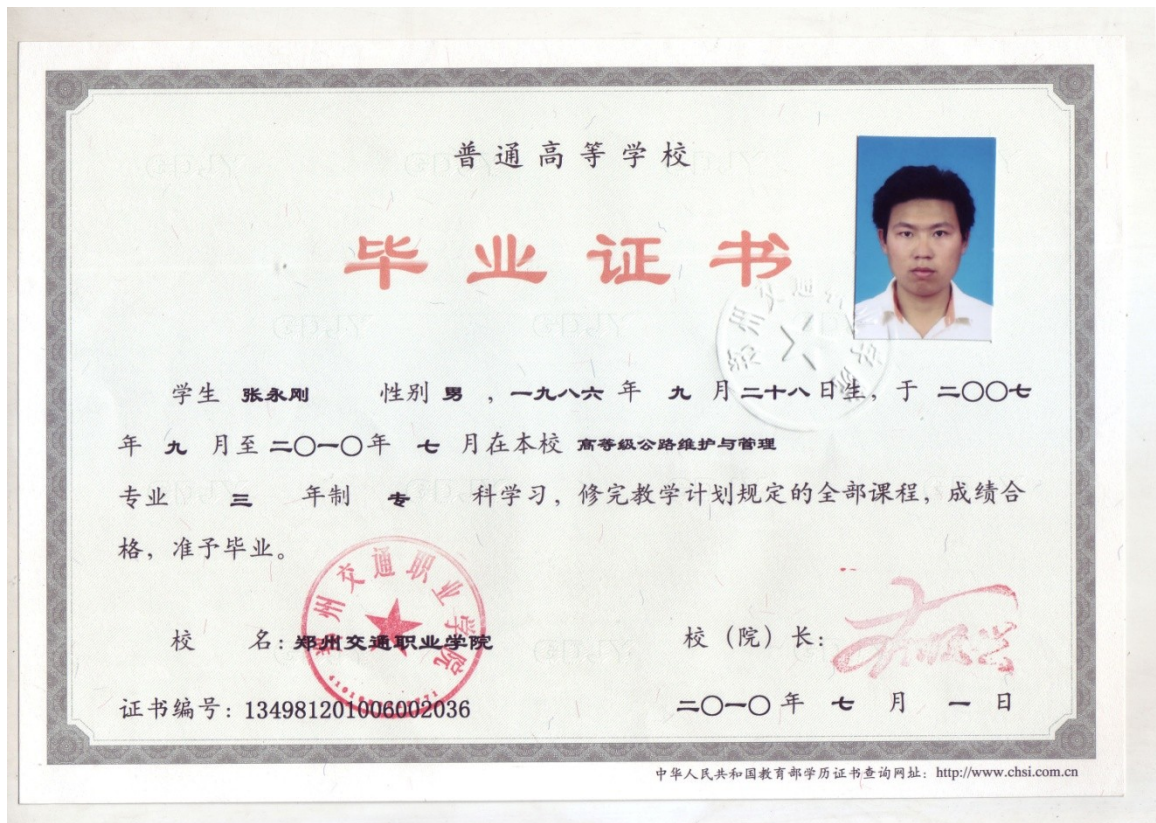 普通高等学校
毕业证书
学生 张永刚 性别 男 ，一九八六 年 九 月 二十八 日生，于 二〇〇七
年 九 月至 二〇一〇 年 七 月在本校 高等级公路维护与管理
专业 三 年制 专 科学习，修完教学计划规定的全部课程，成绩合
格，准予毕业。
郑州交通职业学院
校 名：郑州交通职业学院 校（院）长：
证书编号：134981201006002036 二〇一〇 年 七 月 一 日
中华人民共和国教育部学历证书查询网址：http://www.chsi.com.cn